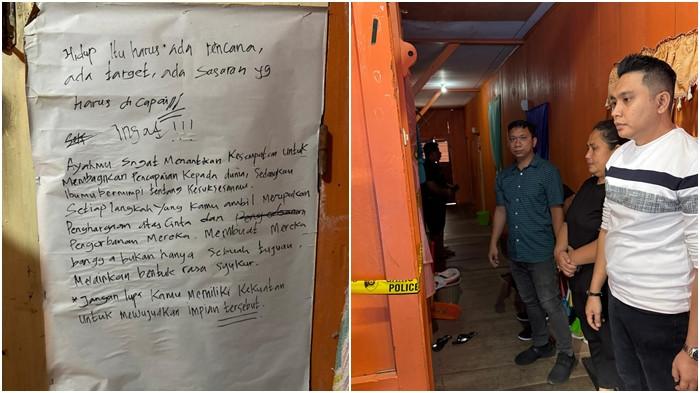 Hidup Itu harus Ada rencana,
ada target, ada Sasaran yg
harus di capai
Ingat !!!
Ayahmu Sngat Menantikan Kesempatan Untuk
Membagikan Pencapaian Kepada dunia, Sedangkan
Ibumu bermimpi tentang Kesuksesanmu.
Setiap langkah yang Kamu ambil Merupakan
Penghargaan Atas Cinta dan
Pengorbanan Mereka. Membuat Mereka
bangga bukan hanya Sebuah tujuan.
Melainkan bentuk rasa Syukur.
* Jangan lupa Kamu Memiliki Kekuatan
Untuk Mewujudkan Impian tersebut.
POLICE